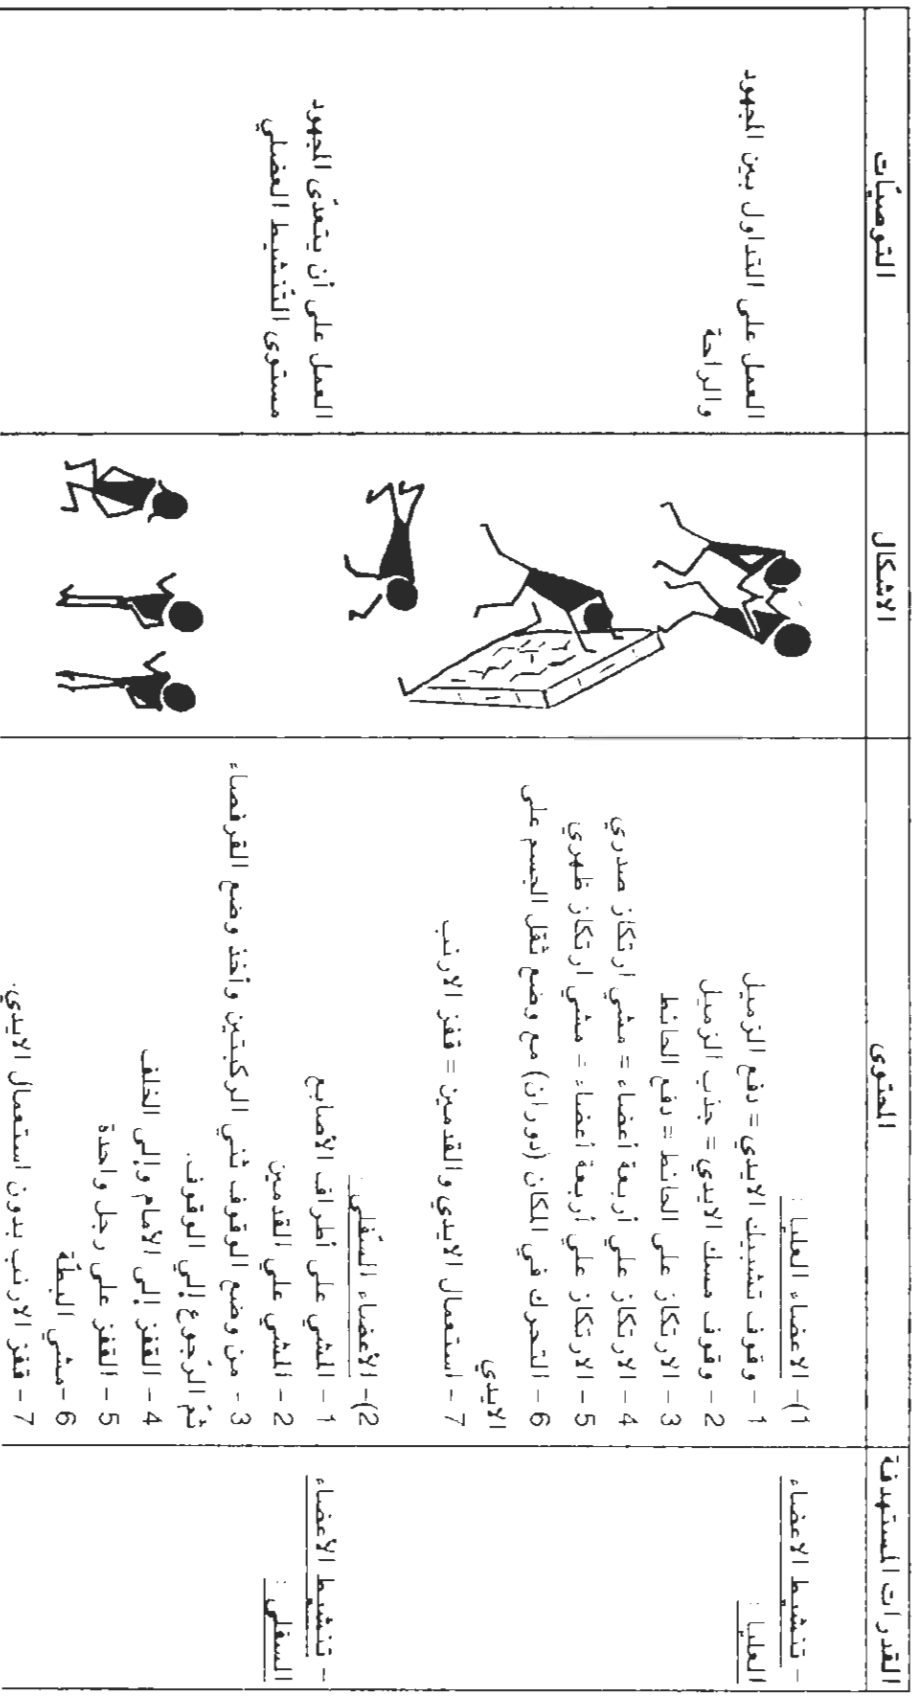 القدرات المستهدفة
المحتوى
الاشكال
التوصيات
- تنشيط الاعضاء
العليا :
1)- الاعضاء العليا :
1 - وقوف تشبيك الايدي = دفع الزميل
2 - وقوف مسك الايدي = جذب الزميل
3 - الارتكاز على الحائط = دفع الحائط
4 - الارتكاز علي أربعة أعضاء = مشي ارتكاز صدري
5 - الارتكاز علي أربعة أعضاء = مشي ارتكاز ظهري
6 - التحرك في المكان (دوران) مع وضع ثقل الجسم على
الايدي
7 - استعمال الايدي والقدمين = قفز الارنب
العمل على التداول بين المجهود
والراحة
- تنشيط الأعضاء
السفلى :
2)- الأعضاء السّفلى :
1 - المشي على أطراف الأصابع
2 - المشي علي القدمين
3 - من وضع الوقوف ثني الركبتين وأخذ وضع القرفصاء
ثمّ الرّجوع إلي الوقوف.
4 - القفز إلى الأمام وإلى الخلف
5 - القفز على رجل واحدة
6 -مشي البطّة
7 - قفز الارنب بدون استعمال الايدي.
العمل على أن يتعدّى المجهود
مستوى التّنشيط العضلي